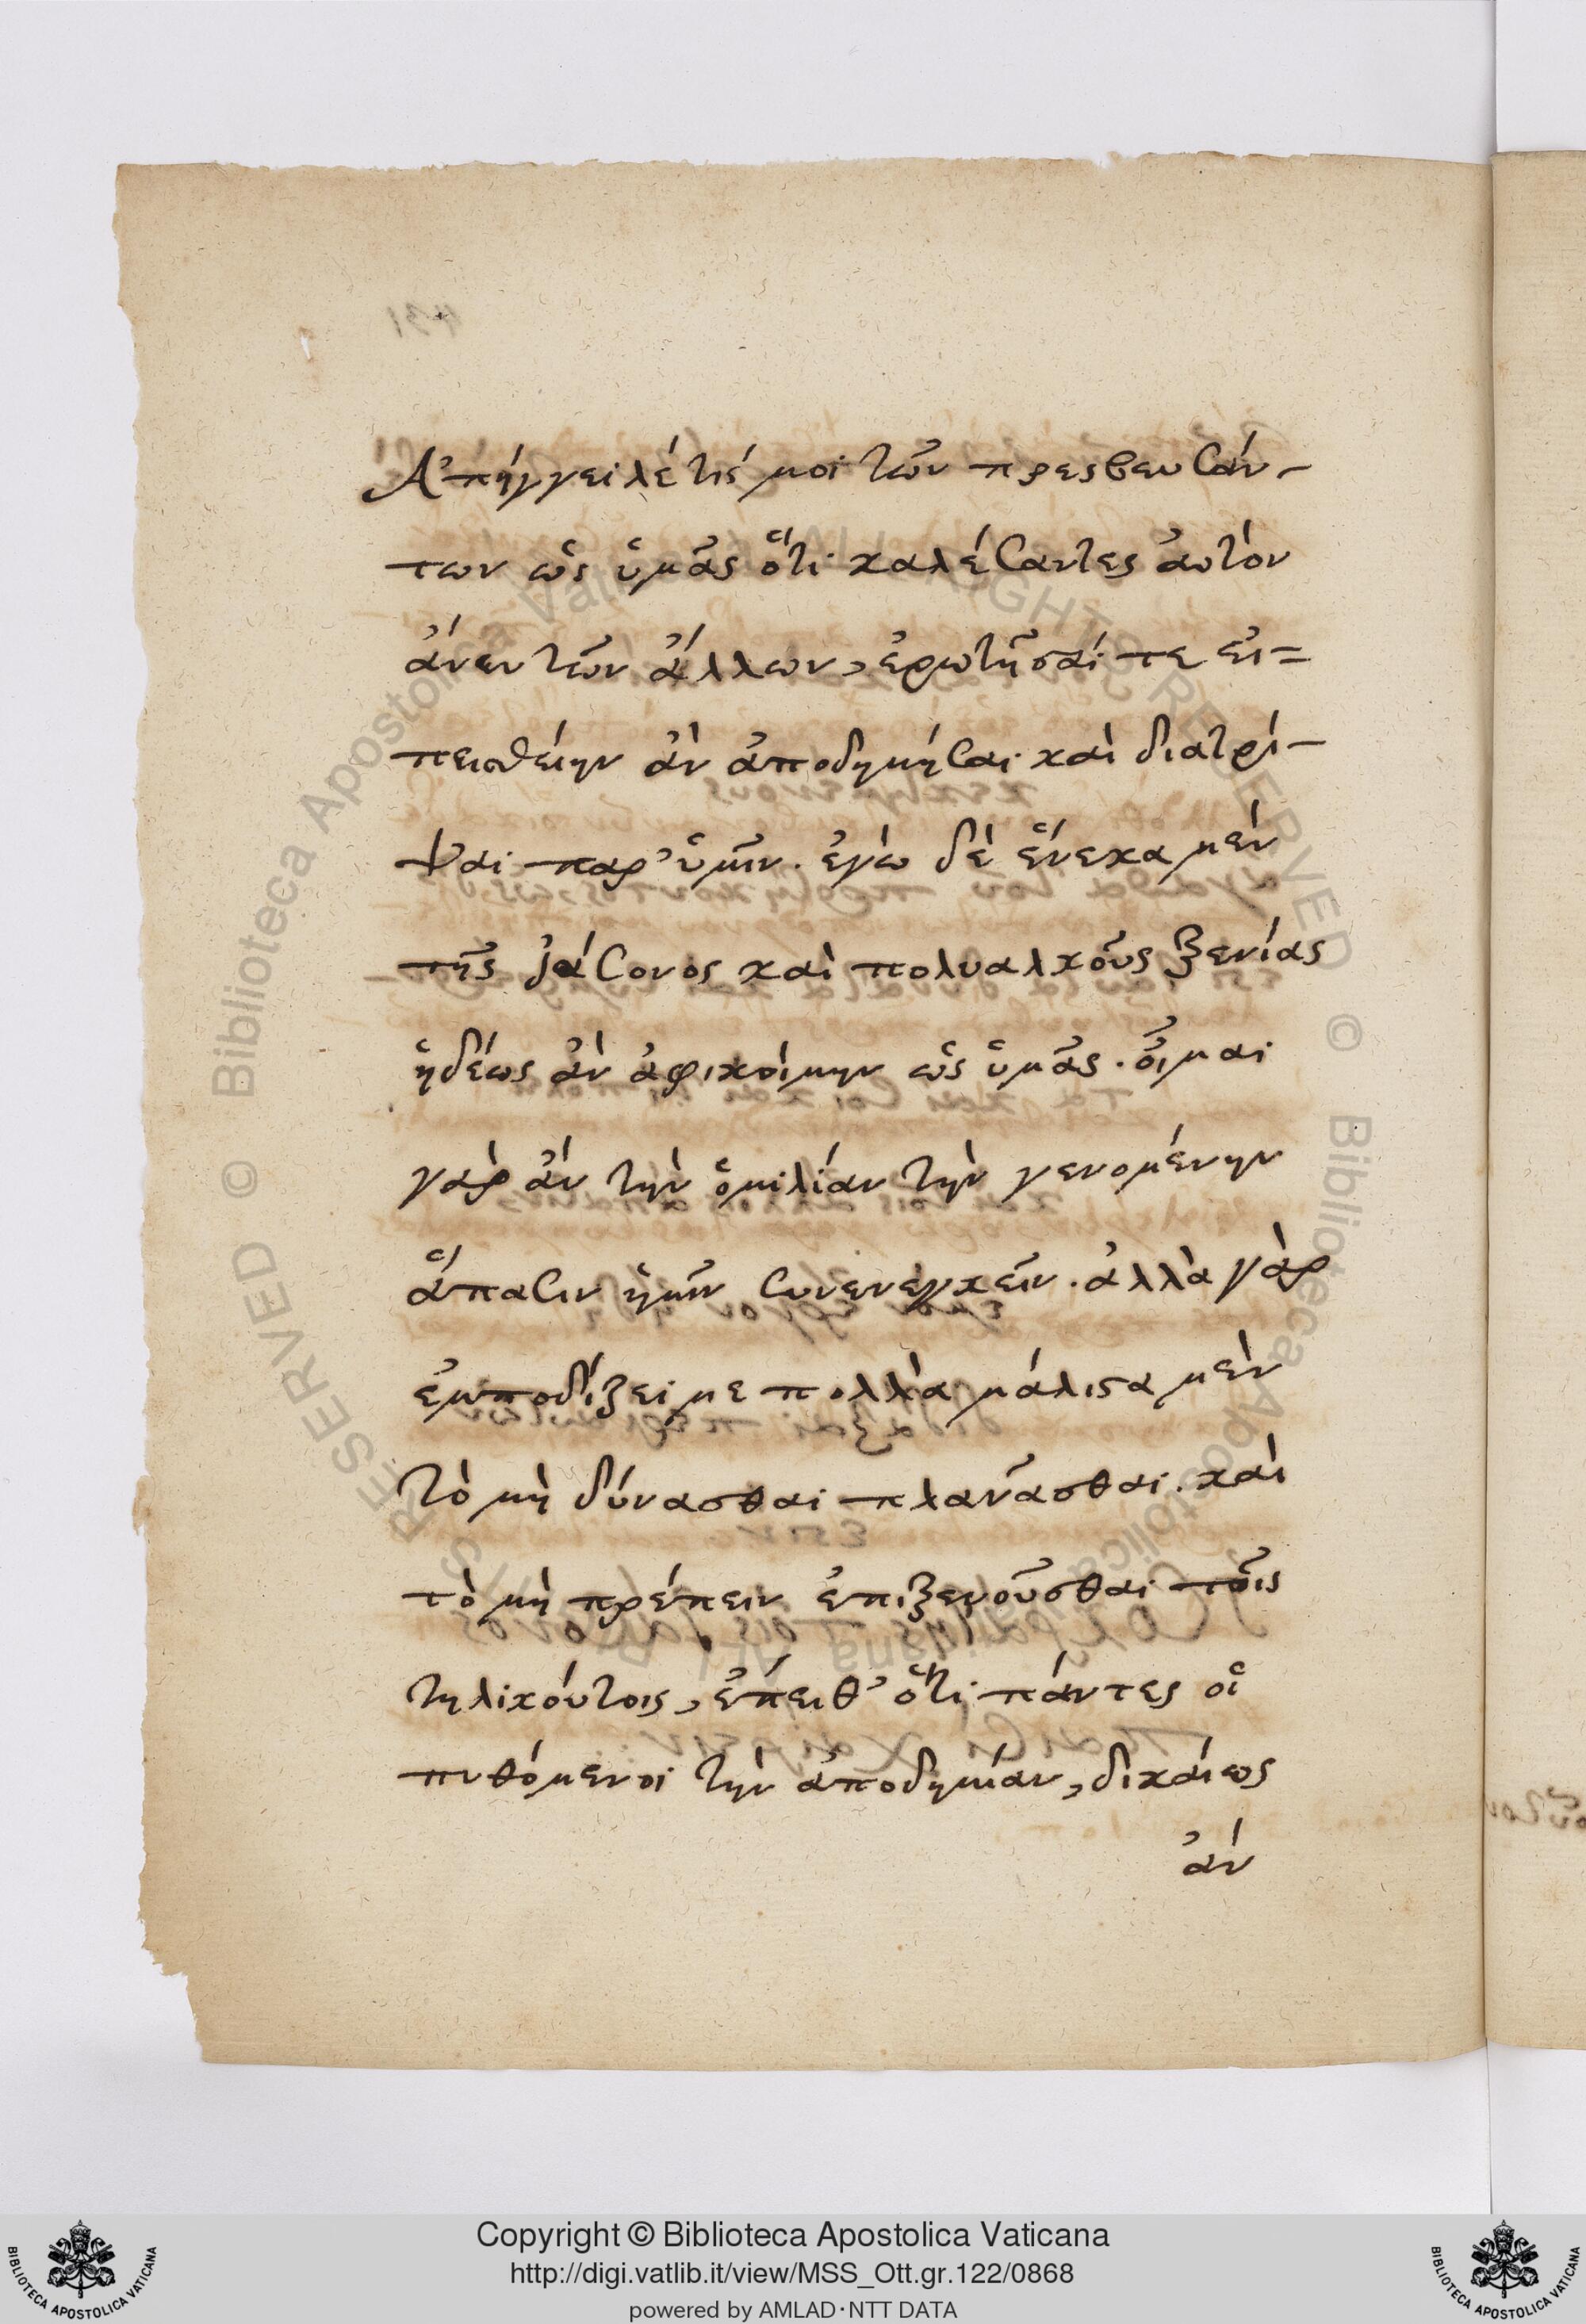 Ἀπήγγειλέ τίς μοι τῶν πρεσβευσάν-
των ὡς ὑμᾶς ὅτι καλέσαντες αὐτὸν
ἄνευ τῶν ἄλλων, ἐρωτῆσαί τε εἰ=
πεισθείην ἂν ἀποδημῆσαι καὶ διατρί-
ψαι παρ' ὑμῖν. ἐγὼ δὲ ἕνεκα μὲν
τῆς ἰάσονος καὶ πολυαλκοῦς ξενίας
ἡδέως ἂν ἀφικοίμην ὡς ὑμᾶς. οἶμαι
γὰρ ἂν τὴν ὁμιλίαν τὴν γενομένην
ἅπασιν ἡμῖν συνενεγκεῖν. ἀλλὰ γὰρ
ἐμποδίζει με πολλὰ μάλιστα μὲν
τὸ μὴ δύνασθαι πλανᾶσθαι. καὶ
τὸ μὴ πρέπειν ἐπιξενοῦσθαι τοῖς
τηλικούτοις, ἔπειθ' ὅτι πάντες οἱ
πυθόμενοι τὴν ἀποδημίαν, δικαίως
ἂν
Copyright © Biblioteca Apostolica Vaticana
http://digi.vatlib.it/view/MSS_Ott.gr.122/0868
powered by AMLAD·NTT DATA
BIBLIOTECA APOSTOLICA VATICANA
BIBLIOTECA APOSTOLICA VATICANA